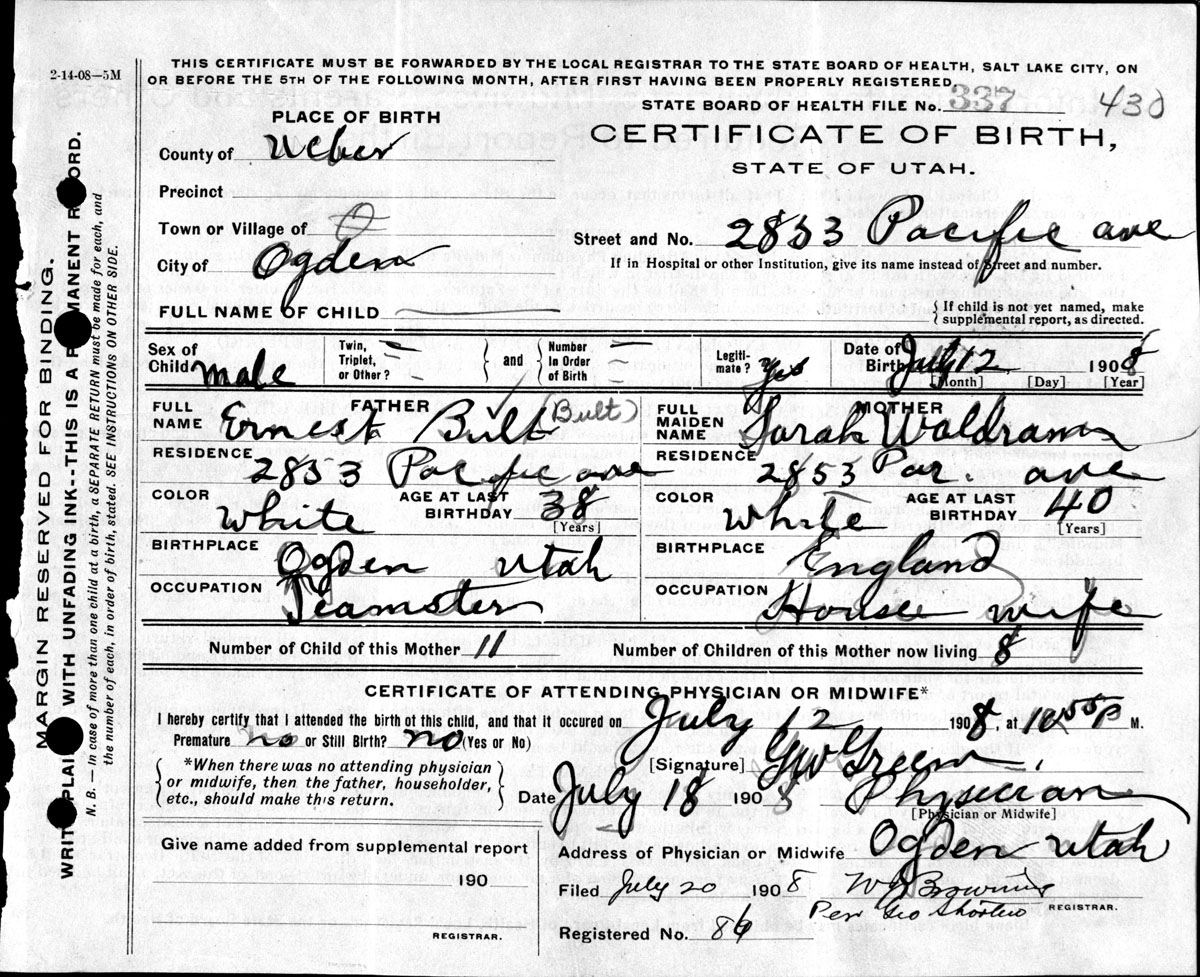 2-14-08—5M
THIS CERTIFICATE MUST BE FORWARDED BY THE LOCAL REGISTRAR TO THE STATE BOARD OF HEALTH, SALT LAKE CITY, ON
OR BEFORE THE 5TH OF THE FOLLOWING MONTH, AFTER FIRST HAVING BEEN PROPERLY REGISTERED.
STATE BOARD OF HEALTH FILE No. 337 430
PLACE OF BIRTH
CERTIFICATE OF BIRTH,
STATE OF UTAH.
County of Weber
Precinct
Town or Village of
Street and No. 2853 Pacific ave
City of Ogden
If in Hospital or other Institution, give its name instead of street and number.
FULL NAME OF CHILD
If child is not yet named, make
supplemental report, as directed.
Sex of Child Male
Twin, Triplet, or Other?
and
Number in Order of Birth
Legiti-mate? Yes
Date of Birth July 12 1908
[Month] [Day] [Year]
FATHER
FULL NAME Ernest Bult (Bult)
MOTHER
FULL MAIDEN NAME Sarah Waldram
RESIDENCE 2853 Pacific ave
RESIDENCE 2853 Pac. ave
COLOR White AGE AT LAST BIRTHDAY 38 [Years]
COLOR White AGE AT LAST BIRTHDAY 40 [Years]
BIRTHPLACE Ogden Utah
BIRTHPLACE England
OCCUPATION Teamster
OCCUPATION House wife
Number of Child of this Mother 11
Number of Children of this Mother now living 8
CERTIFICATE OF ATTENDING PHYSICIAN OR MIDWIFE*
I hereby certify that I attended the birth of this child, and that it occured on July 12 1908, at 10 55 P M.
Premature no or Still Birth? no (Yes or No)
*When there was no attending physician
or midwife, then the father, householder,
etc., should make this return.
[Signature] GW Green.
Date July 18 1908 Physician
[Physician or Midwife]
Give name added from supplemental report
190
REGISTRAR.
Address of Physician or Midwife Ogden Utah
Filed July 20 1908 Browning
Per Geo
REGISTRAR.
Registered No. 86
MARGIN RESERVED FOR BINDING.
WRITE PLAINLY WITH UNFADING INK--THIS IS A PERMANENT RECORD.
N. B.— In case of more than one child at a birth, a SEPARATE RETURN must be made for each, and
the number of each, in order of birth, stated. SEE INSTRUCTIONS ON OTHER SIDE.